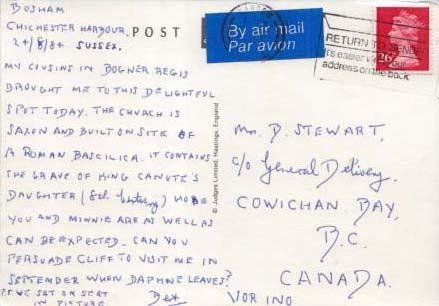 BOSHAM
CHICHESTER HARBOUR.
24/8/84 SUSSEX.
MY COUSINS IN BOGNER REGIS
BROUGHT ME TO THIS DELIGHTFUL
SPOT TODAY. THE CHURCH IS
SAXON AND BUILT ON SITE OF
A ROMAN BASCILICA. IT CONTAINS
THE GRAVE OF KING CANUTE'S
DAUGHTER (8th Century) HOPE
YOU AND MINNIE ARE AS WELL AS
CAN BE EXPECTED. CAN YOU
PERSUADE CLIFF TO VISIT ME IN
SEPTEMBER WHEN DAPHNE LEAVES?
P.S. WE SAT ON SEAT
IN PICTURE
POST
© Judges Limited, Hastings, England
By air mail
Par avion
RETURN TO SENDER
It's easier with your
address on the back
26
Mr. D. STEWART,
c/o General Delivery,
COWICHAN BAY,
B.C.
CANADA.
VOR 1NO